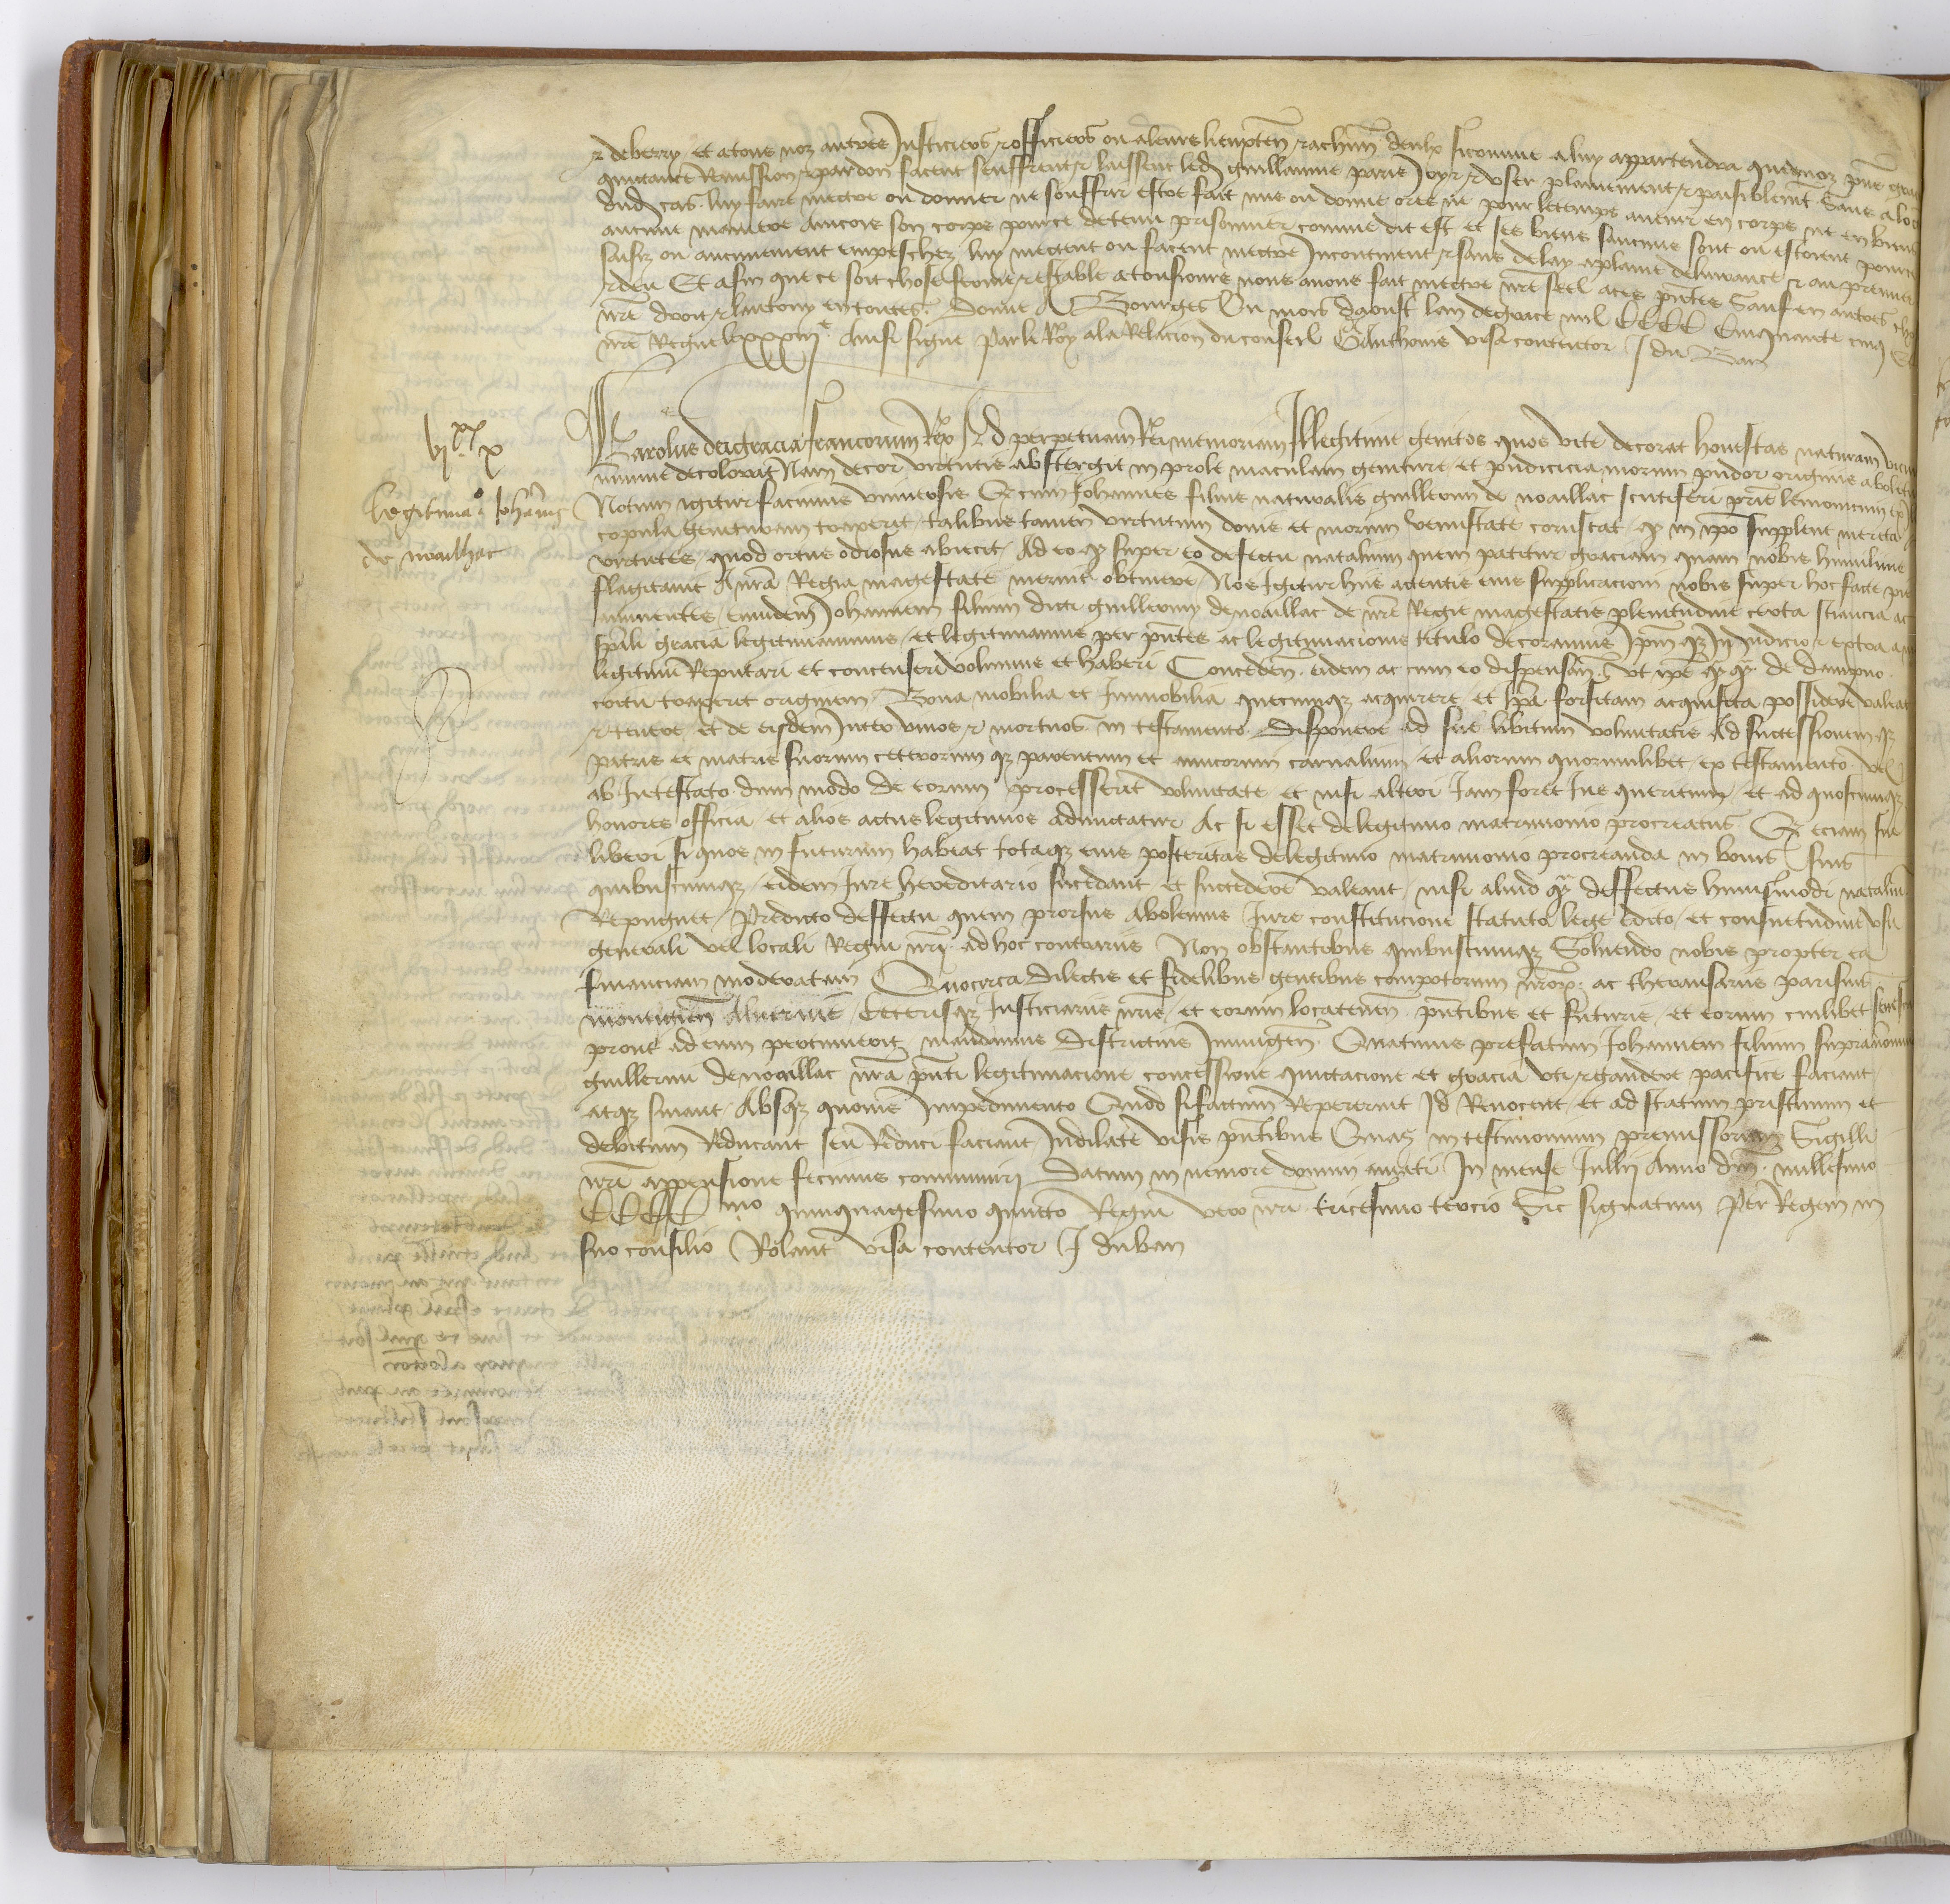 de berry et a tous noz autres Justiciers & officiers ou a leurs lieuxten & a chũn deulx si comme a luy appartendra que noz pñs grace
quittance Remission & pardon facent seuffrent & laissent led guillaume parie Joyr & user plainement & paisiblemt Sans a lo
dud cas luy faire mectre ou donner ne souffrir estre fait mis ou donne ores ne pour le temps auenir en corps ne en biens
aucune maniere Aincois son corps pource detenu prisonnier comme dit est et ses biens saucuns sont ou estoient pource
saisiz ou aucunement empeschez luy mectent ou facent mectre Incontinent & sans delay a plaine deliurance & au premier
& deu Et afin que ce soit chose ferme & estable a tousiours nous auons fait mectre nrẽ seel a ces pñtes Sauf en autres ch
nrẽ droit & lautruy en toutes Donne A Bourges Ou mois daoust lan de grace mil CCCC Cinquante cinq Et
nrẽ Regne le xxxiiie Ainsi signe Par le Roy a la Relacion du conseil GAnthonis visa contentor J du Ban
vi xx x
Legitimao Johãnis
de noailhac
Karolus dei gracia francorum Rex Ad perpetuam Rei memoriam Illegitime genitos quos vite decorat honestas nature vicium
minime decolorat Nam decor virtutis abstergit in prole maculam geniture et pudicicia morum pudor originis aboletur
Notum igitur facimus universis Qz cum Johannes filius naturalis guillermi de noaillac scutiferi prie lemouicum ex
copula genituram traxerit talibus tamen virtutum donis et morum venustate coruscat qz in ipõ supplent merita
virtutes quod ortus odiosus abiecit Ad eo qz super eo defectu natalium quem patitur graciam quam nobis humilime
flagitauit A nrã Regia magestate meruit obtinere Nos Igitur hiis actentis eius supplicacioni nobis super hoc facte pie
annuentes eundem Johannem filium dicti guillermi de noaillac de nrẽ Regie magestatis plenitudine certa sciancia ac
spãli gracia legitimamus et legitimamus per pñtes ac legitimacionis titulo decoramus Ipm qz In iudicio & extra a
legitimũ Reputari et concenseri volumus et haberi Conceden eidem ac cum eo dispensan vt ipe qz qz de dampno
coitu traxerit originem Bona mobilia et Immobilia quecunqz acquirere et Iha forsitam acquisita possidere valeat
& tenere et de eisdem Inter vivos & mortuos in testamento Disponere ad sue libitum voluntatis Ad successionem qz
patris et matris suorum ceterorum qz parentum et amicorum carnalium et aliorum quorumlibet ex testamento vel
ab Intestato dum modo de eorum processerit voluntate et nisi alteri Iam foret Ius quesitum et ad quoscumqz
honores officia et alios actus legitimos admictatur Ac si esset de legitimo matrimonio procreatus Qz eciam sui
liberi si quos in futurum habeat totaqz eius posteritas de legitimo matrimonio procreanda in bonis suis
quibuscumqz eidem Jure hereditario succedant et succedere valeant nisi aliud qz deffectus huiusmodi natalium
Repugnet Predicto deffectu quem prorsus Abolemus Jure constitucione statuto lege edicto et consuetudine usu
generali vel locali Regni nrĩ ad hoc contrariis Non obstantibus quibuscumqz Soluendo nobis propter ea
financiam moderatam Quocirca dilectis et fidelibus gentibus compotorum nrõrz ac thesaurariis parisius
montium Aluernie Ceterisqz Justiciariis nrĩs et eorum locatenen pñtibus et futuris et eorum cuilibet senesc
prout ad eum pertinuerit mandamus Districtius Iniungen Quatinus prefatum Johannem filium supranomin
guillermi de noaillac nrã pñti legitimacione concessione quictacione et gracia vti & gaudere pacifice faciant
atqz sinant Absqz quouis Impedimento Quod si factum Repererint Id Reuocent et ad statum pristinum et
debitum Reducant seu Reduci faciant Indilate visis pñtibus Quas in testimonium premissorum Sigilli
nrĩ appensione fecimus communiri Datum in nemore domini amati In mense Jullij Anno dñi millesimo
CCCC mo quinquagesimo quinto Regni vero nrĩ tricesimo tercio Sic signatum Per Regem in
suo consilio Rolant visa contentor J duban